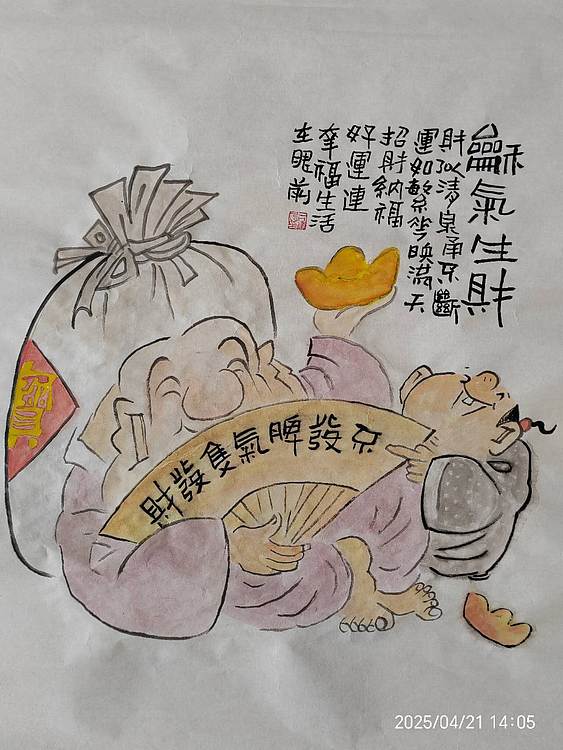 龢氣生財
財以清泉甬不斷
運如繁花映滿天
招財納福
好運連
幸福生活
在眼前
不發脾氣隻發財
寶
2025/04/21 14:05